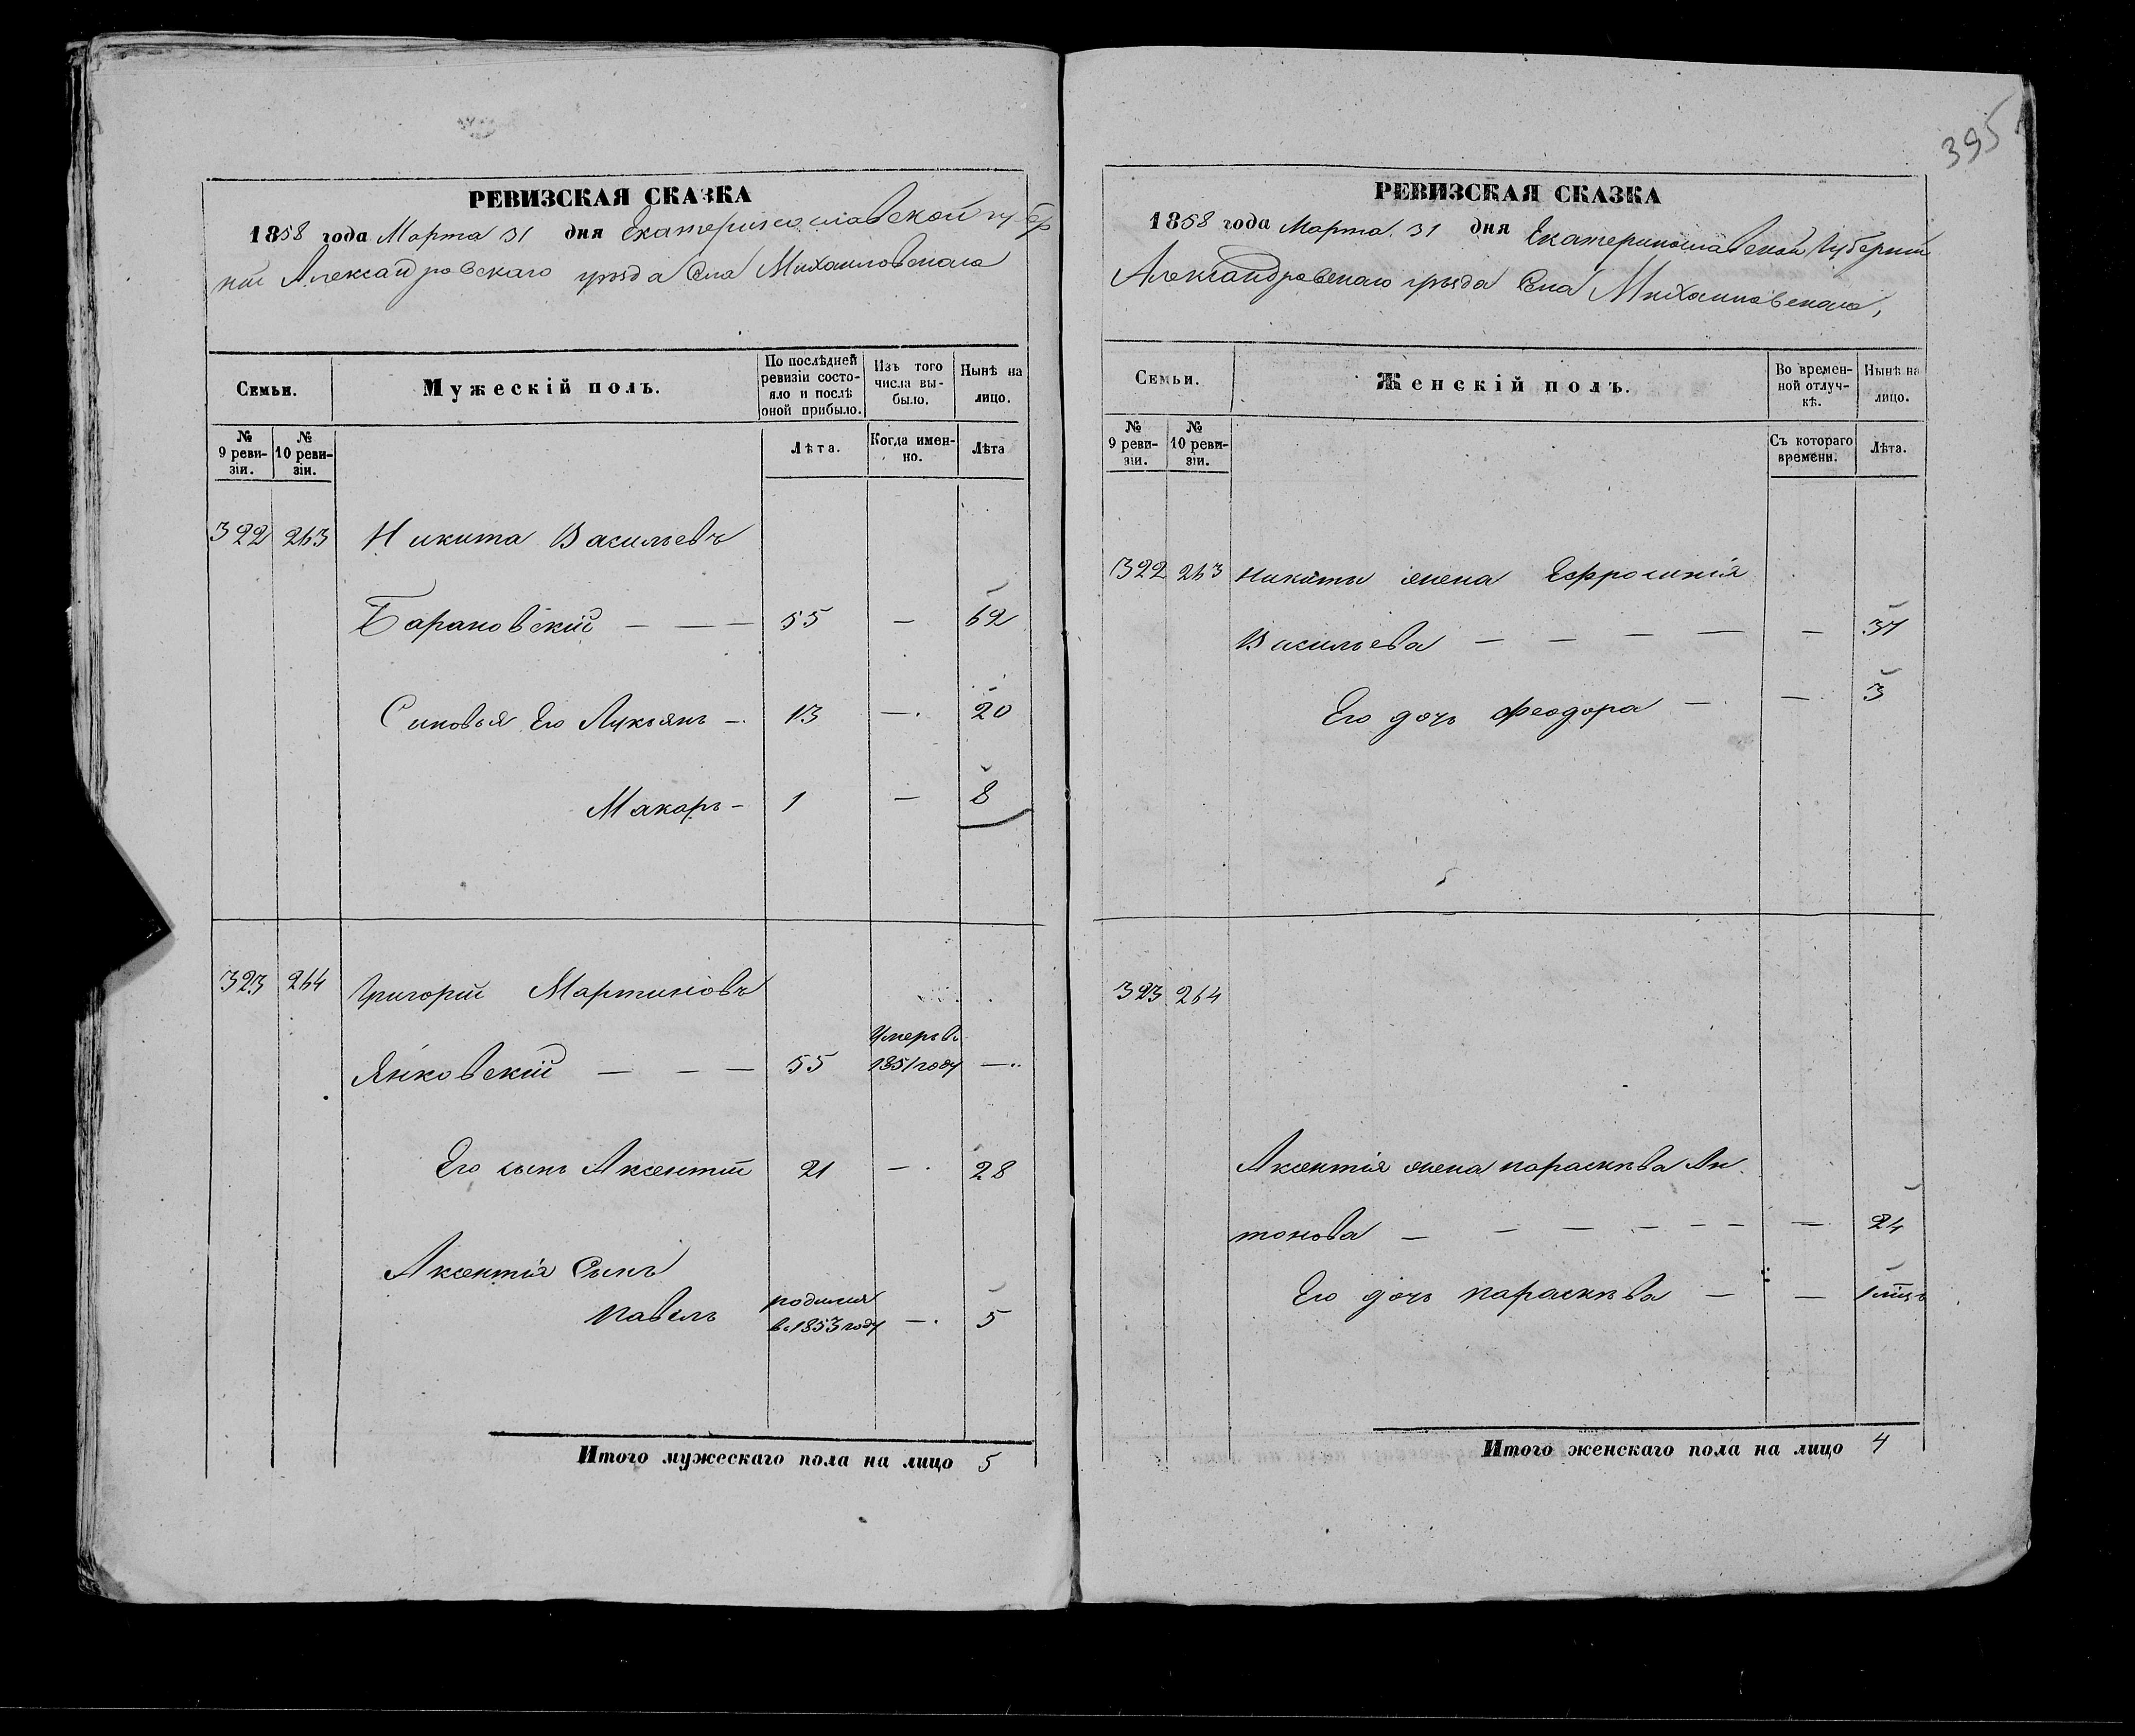 395
РЕВИЗСКАЯ СКАЗКА
1858 года Марта 31 дня Екатеринославской губер
ніи Александровскаго уѣзда Села Михайловскаго
Семьи.
Мужескій полъ.
По послѣдней ревизіи состояло и послѣ оной прибыло.
Изъ того числа вы-было.
Нынѣ на лицо.
№ 9 реви-зіи.
№ 10 реви-зіи.
Лѣта.
Когда имен-но.
Лѣта
322 263 Никита Васильевъ
Барановскій — — — 55 — 62
Синовья Его Лукьянъ — 13 — 20
Макаръ — 1 — 8
323 264 Григорій Мартиновъ
Янковскій — — — 55 Умеръ въ 1851 году —
Его сынъ Аксентій 21 — 28
Аксентія Сынъ
Павелъ родился в. 1853 году — 5
Итого мужескаго пола на лицо 5
РЕВИЗСКАЯ СКАЗКА
1858 года Марта 31 дня Екатеринославской Губерніи
Александровскаго уѣзда Села Михайловскаго,
Семьи.
Женскій полъ.
Во времен-ной отлуч-кѣ.
Нынѣ на лицо.
№ 9 реви-зіи.
№ 10 реви-зіи.
Съ котораго времени.
Лѣта.
322 263 Никиты жена Ефросинія
Васильева — — — — — 37
Его дочь Феодора — — 3
323 264
Аксентія жена Параскѣва Ан
тонова — — — — — — — 24
Его дочь Параскѣва — — 1 мѣць
Итого женскаго пола на лицо 4